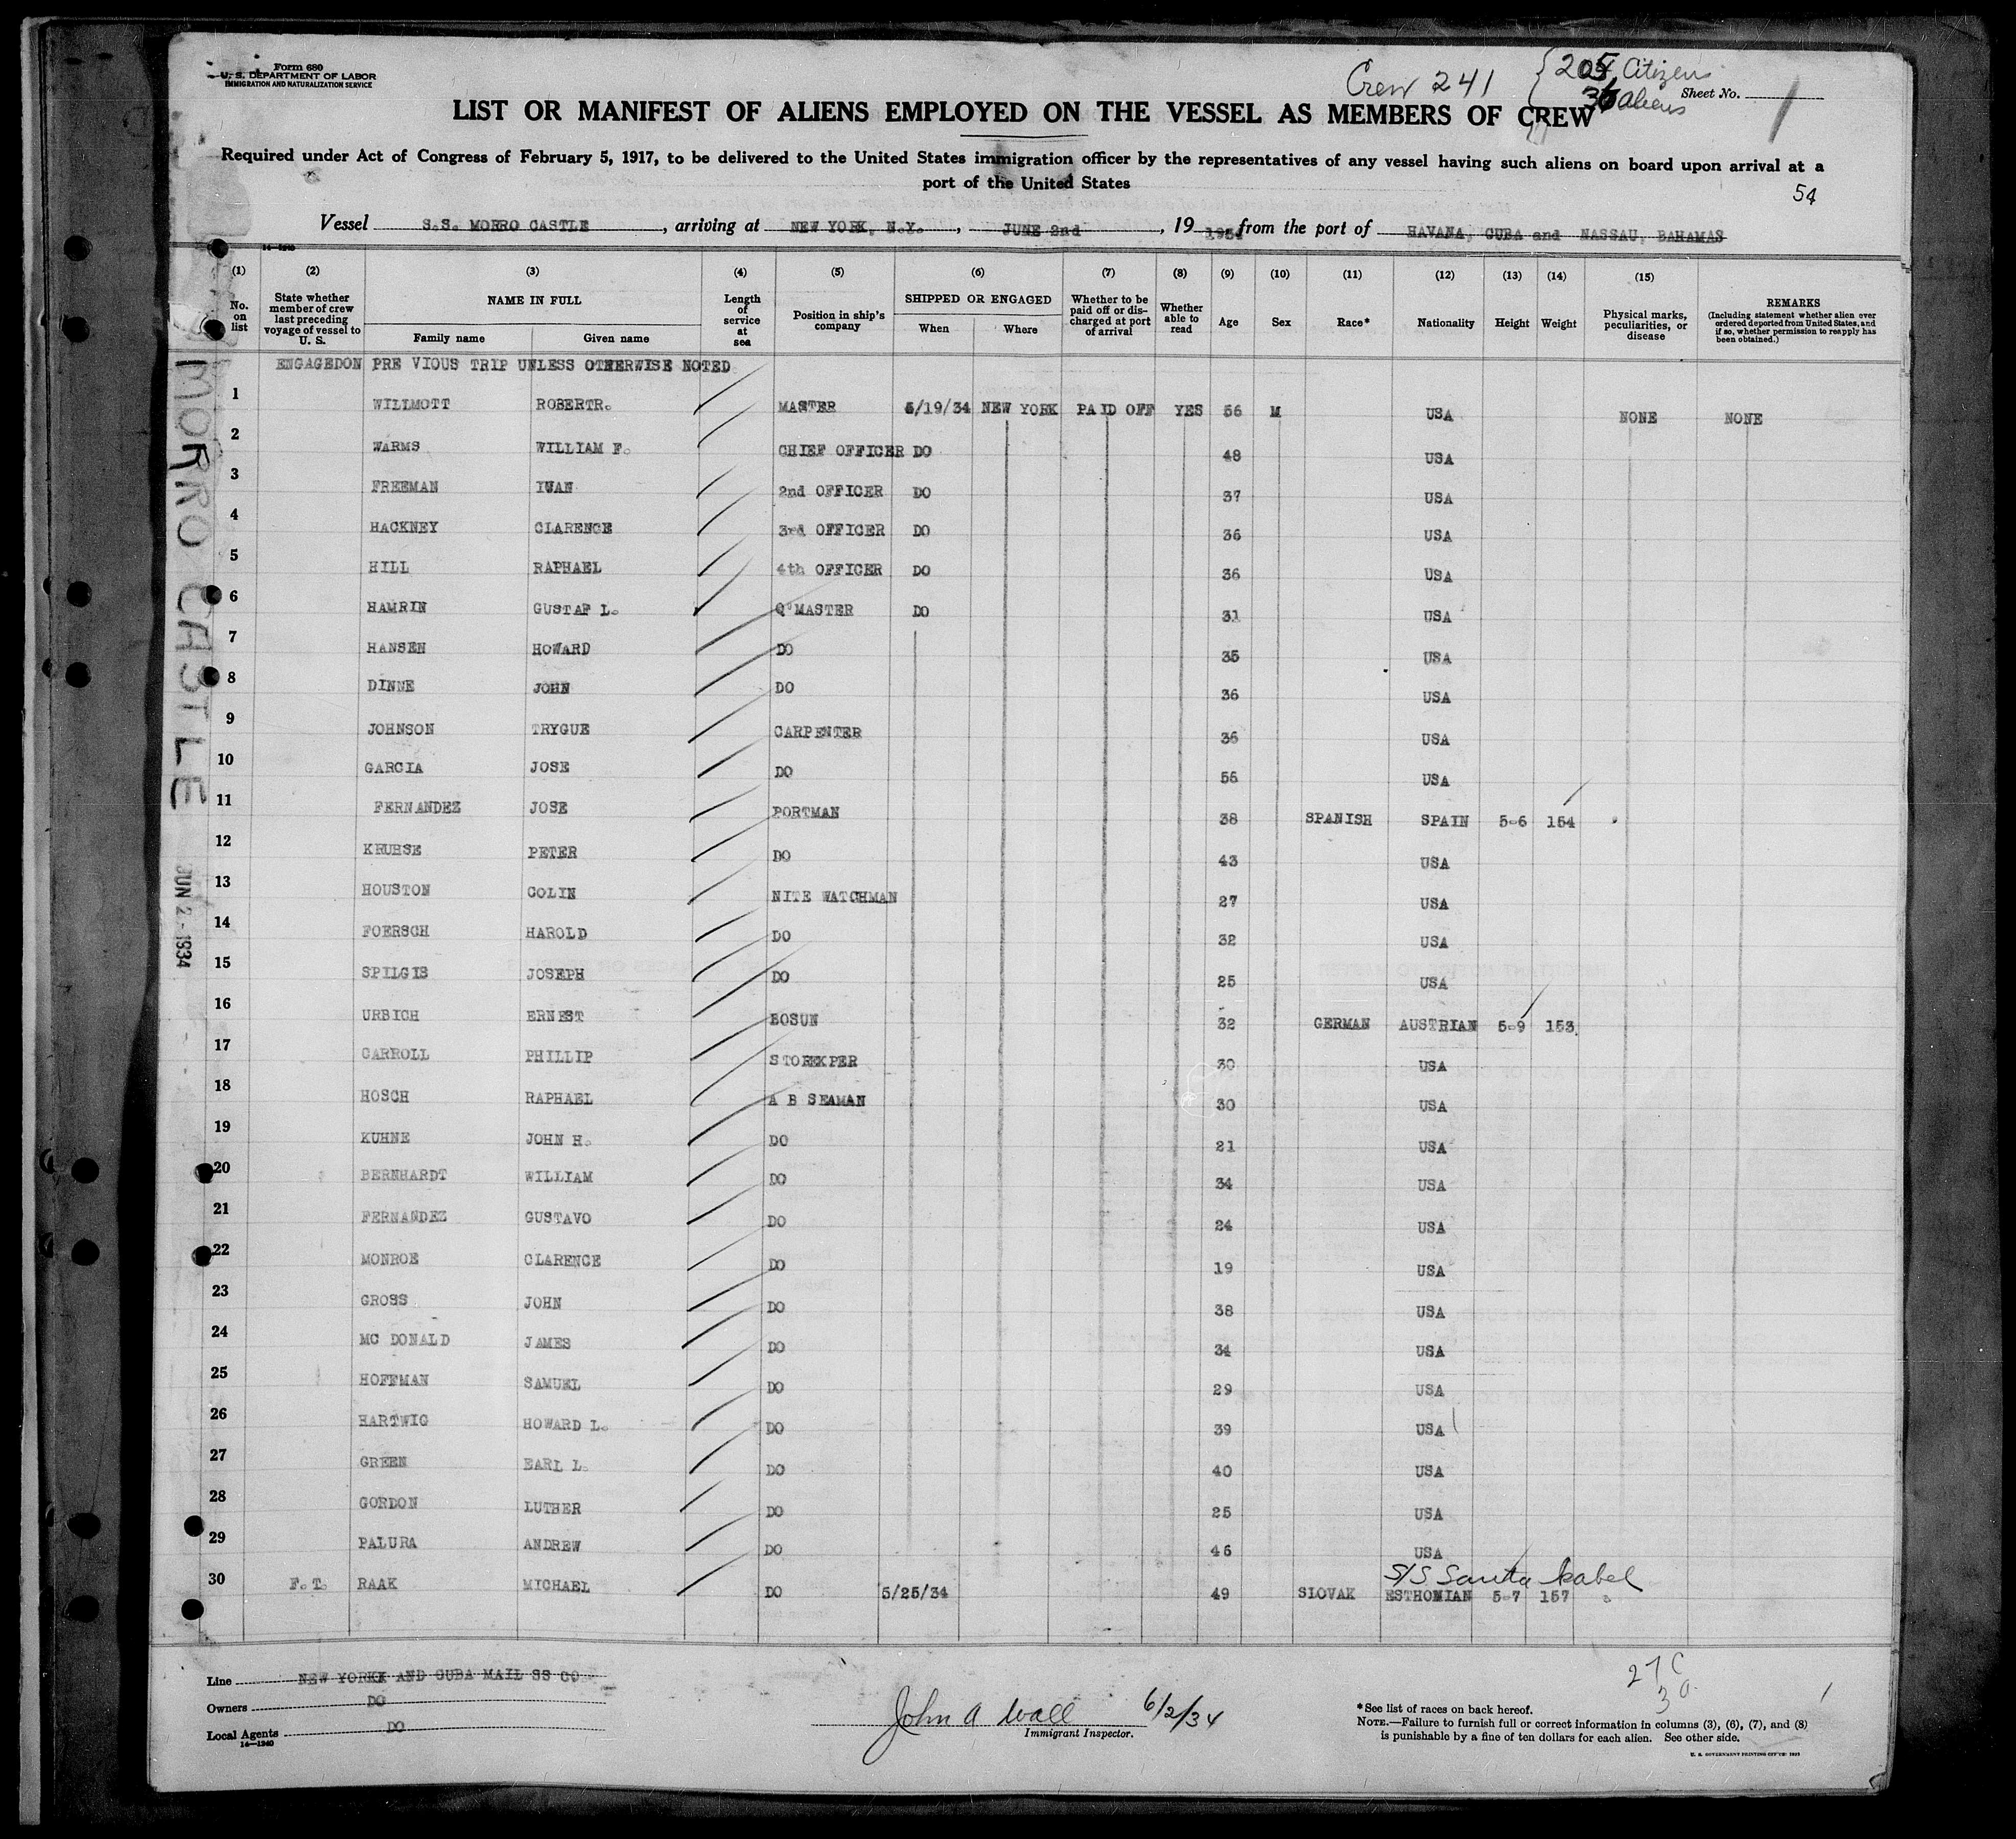 Form 680
U. S. DEPARTMENT OF LABOR
IMMIGRATION AND NATURALIZATION SERVICE
Crew 241
205 Citizens
36 aliens
Sheet No. 1
LIST OR MANIFEST OF ALIENS EMPLOYED ON THE VESSEL AS MEMBERS OF CREW
Required under Act of Congress of February 5, 1917, to be delivered to the United States immigration officer by the representatives of any vessel having such aliens on board upon arrival at a
port of the United States
54
Vessel S.S. MORRO CASTLE, arriving at NEW YORK, N.Y., JUNE 2nd, 19 1934 from the port of HAVANA, CUBA and NASSAU, BAHAMAS
14—1240
(1) (2) (3) (4) (5) (6) (7) (8) (9) (10) (11) (12) (13) (14) (15)
No. on list
State whether member of crew last preceding voyage of vessel to U. S.
NAME IN FULL
Family name
Given name
Length of service at sea
Position in ship's company
SHIPPED OR ENGAGED
When
Where
Whether to be paid off or discharged at port of arrival
Whether able to read
Age
Sex
Race*
Nationality
Height
Weight
Physical marks, peculiarities, or disease
REMARKS
(Including statement whether alien ever ordered deported from United States, and if so, whether permission to reapply has been obtained.)
ENGAGEDON PRE VIOUS TRIP UNLESS OTHERWISE NOTED
1 WILLMOTT ROBERTR. MASTER 5/19/34 NEW YORK PAID OFF YES 56 M USA NONE NONE
2 WARMS WILLIAM F. CHIEF OFFICER DO 48 USA
3 FREEMAN IWAN 2nd OFFICER DO 37 USA
4 HACKNEY CLARENCE 3rd OFFICER DO 36 USA
5 HILL RAPHAEL 4th OFFICER DO 36 USA
6 HAMRIN GUSTAF L. Q'MASTER DO 31 USA
7 HANSEN HOWARD DO 35 USA
8 DINNE JOHN DO 36 USA
9 JOHNSON TRYGUE CARPENTER 36 USA
10 GARCIA JOSE DO 56 USA
11 FERNANDEZ JOSE PORTMAN 38 SPANISH SPAIN 5-6 154
12 KRUHSE PETER DO 43 USA
13 HOUSTON COLIN NITE WATCHMAN 27 USA
14 FOERSCH HAROLD DO 32 USA
15 SPILGIS JOSEPH DO 25 USA
16 URBICH ERNEST BOSUN 32 GERMAN AUSTRIAN 5-9 153
17 CARROLL PHILLIP STOREKPER 30 USA
18 HOSCH RAPHAEL A B SEAMAN 30 USA
19 KUHNE JOHN H. DO 21 USA
20 BERNHARDT WILLIAM DO 34 USA
21 FERNANDEZ GUSTAVO DO 24 USA
22 MONROE CLARENCE DO 19 USA
23 GROSS JOHN DO 38 USA
24 MC DONALD JAMES DO 34 USA
25 HOFFMAN SAMUEL DO 29 USA
26 HARTWIG HOWARD L. DO 39 USA
27 GREEN EARL L. DO 40 USA
28 GORDON LUTHER DO 25 USA
29 PALURA ANDREW DO 46 USA
S/S Santa Isabel
30 F.T. RAAK MICHAEL DO 5/25/34 49 SLOVAK ESTHONIAN 5-7 157
MORRO CASTLE
JUN 2-1934
Line NEW YORKK AND CUBA MAIL SS CO
Owners DO
Local Agents DO
14—1240
John A Wall 6/2/34
Immigrant Inspector.
27 C
3 a.
*See list of races on back hereof.
NOTE.—Failure to furnish full or correct information in columns (3), (6), (7), and (8)
is punishable by a fine of ten dollars for each alien. See other side.
U. S. GOVERNMENT PRINTING OFFICE